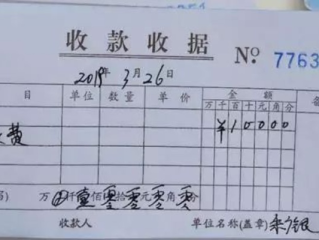 收款收据 No. 7763
2019年3月26日
目 单位 数量 单价 金额
万千百十元角分
费 ¥10000
万⊕仟壹佰零拾零元零角零分
收款人 单位名称(盖章)